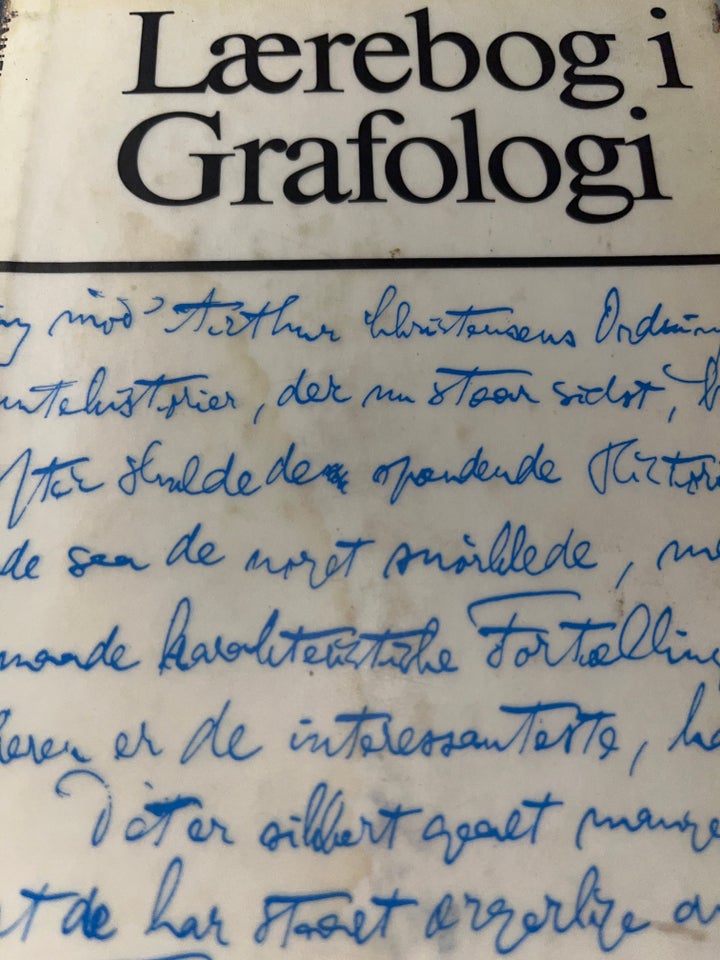 Lærebog i
Grafologi
mod Arthur Christensens Ordning
der nu staar sidst,
skuldede spændende Histori
de saa de noget snørklede, me
maade karakteristiske Fortælling
er de interessanteste, ha
Det er sikkert gaaet mange
at de har staaet ærgerlige o